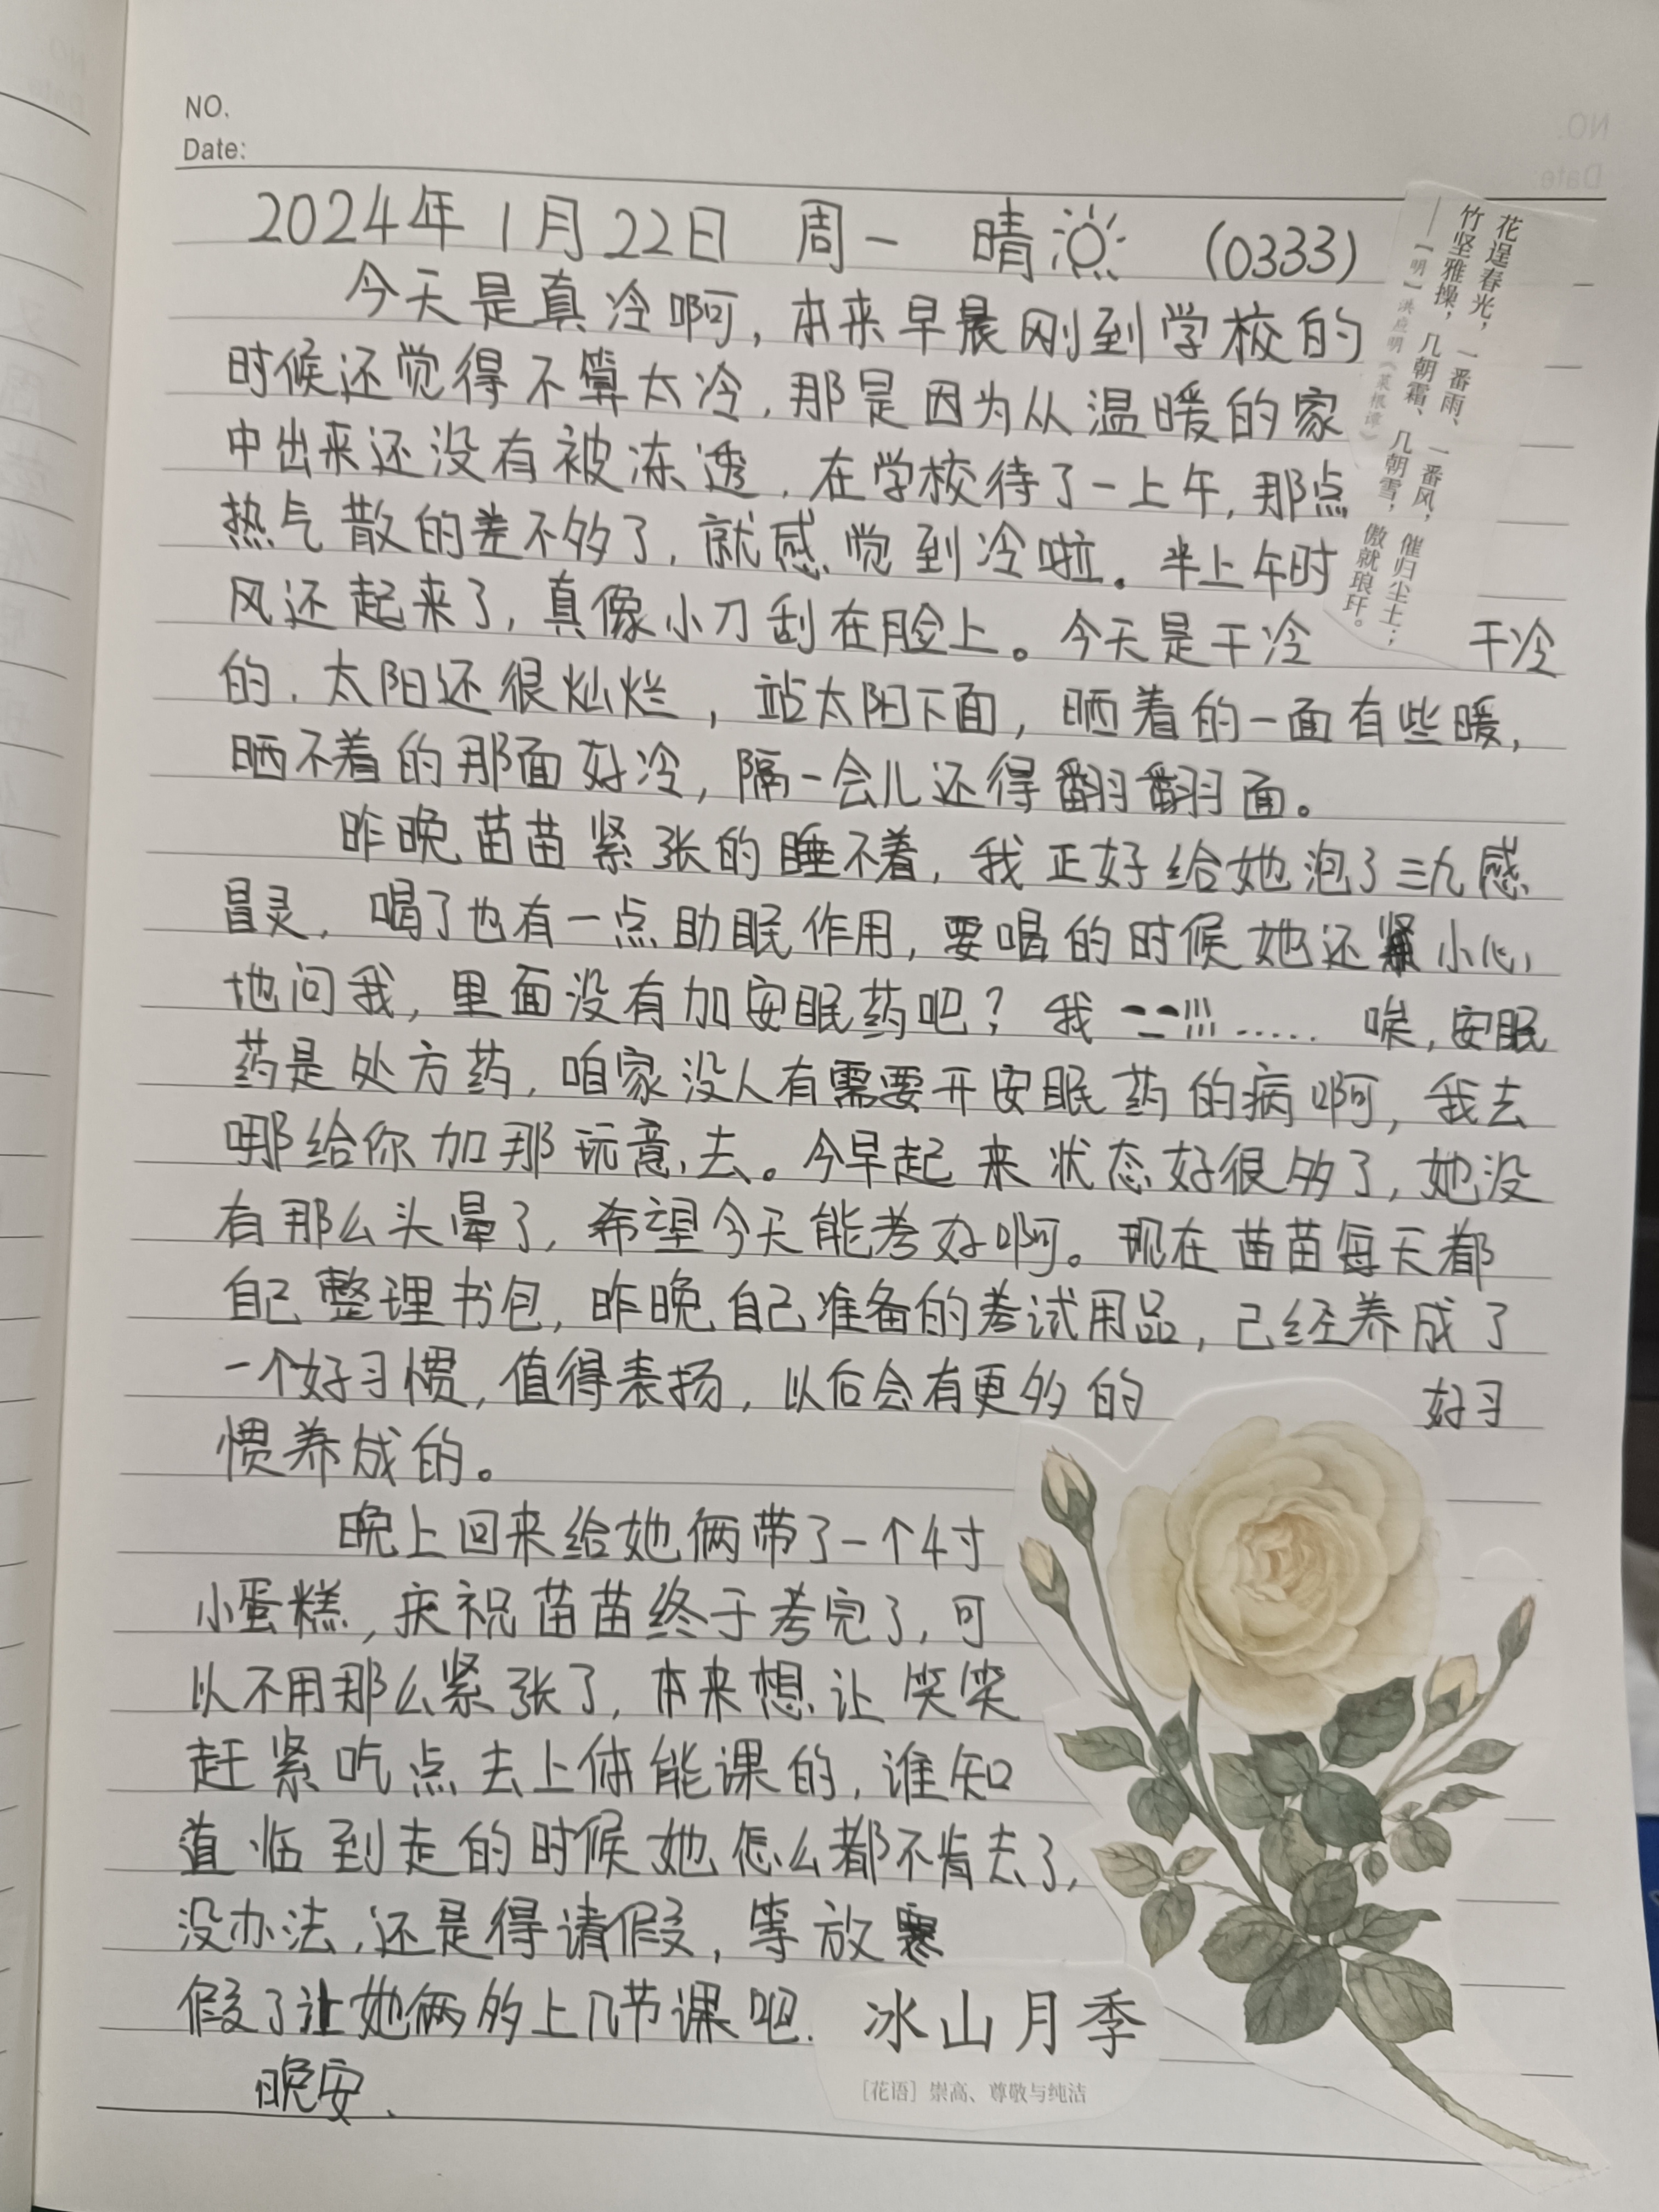 NO.
Date:
2024年1月22日 周一 晴 (0333)
今天是真冷啊，本来早晨刚到学校的
时候还觉得不算太冷，那是因为从温暖的家
中出来还没有被冻透，在学校待了一上午，那点
热气散的差不多了，就感觉到冷啦。半上午时
风还起来了，真像小刀刮在脸上。今天是干冷 干冷
的，太阳还很灿烂，站太阳下面，晒着的一面有些暖，
晒不着的那面好冷，隔一会儿还得翻翻面。
昨晚苗苗紧张的睡不着，我正好给她泡了三九感
冒灵，喝了也有一点助眠作用，要喝的时候她还小心
地问我，里面没有加安眠药吧？我……唉，安眠
药是处方药，咱家没人有需要开安眠药的病啊，我去
哪给你加那玩意去。今早起来状态好很多了，她没
有那么头晕了，希望今天能考好啊。现在苗苗每天都
自己整理书包，昨晚自己准备的考试用品，已经养成了
一个好习惯，值得表扬，以后会有更多的 好习
惯养成的。
晚上回来给她俩带了一个4寸
小蛋糕，庆祝苗苗终于考完了，可
以不用那么紧张了，本来想让笑笑
赶紧吃点去上体能课的，谁知
道临到走的时候她怎么都不肯去了，
没办法，还是得请假，等放寒
假了让她俩多上几节课吧.
晚安.
花逞春光，一番雨、一番风，催归尘土；
竹坚雅操，几朝霜、几朝雪，傲就琅玕。
——【明】洪应明《菜根谭》
冰山月季
[花语] 崇高、尊敬与纯洁